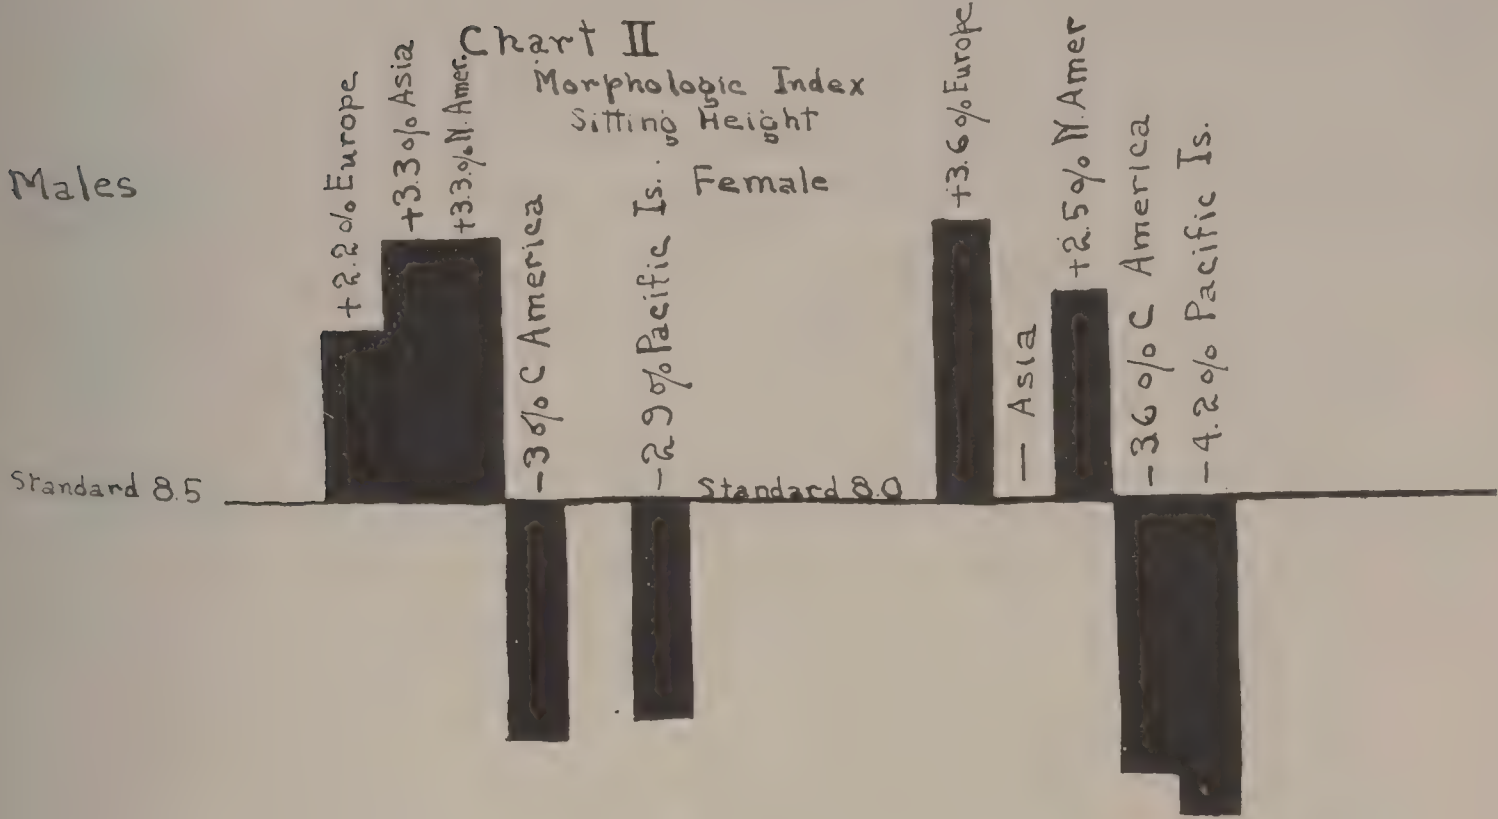 Chart II
Morphologic Index
Sitting Height
Males
+2.2% Europe
+3.3% Asia
+3.3% N. Amer.
-3% C America
-2.9% Pacific Is.
Standard 8.5
Female
+3.6% Europe
— Asia
+2.5% N. Amer
-36% C America
-4.2% Pacific Is.
Standard 8.0